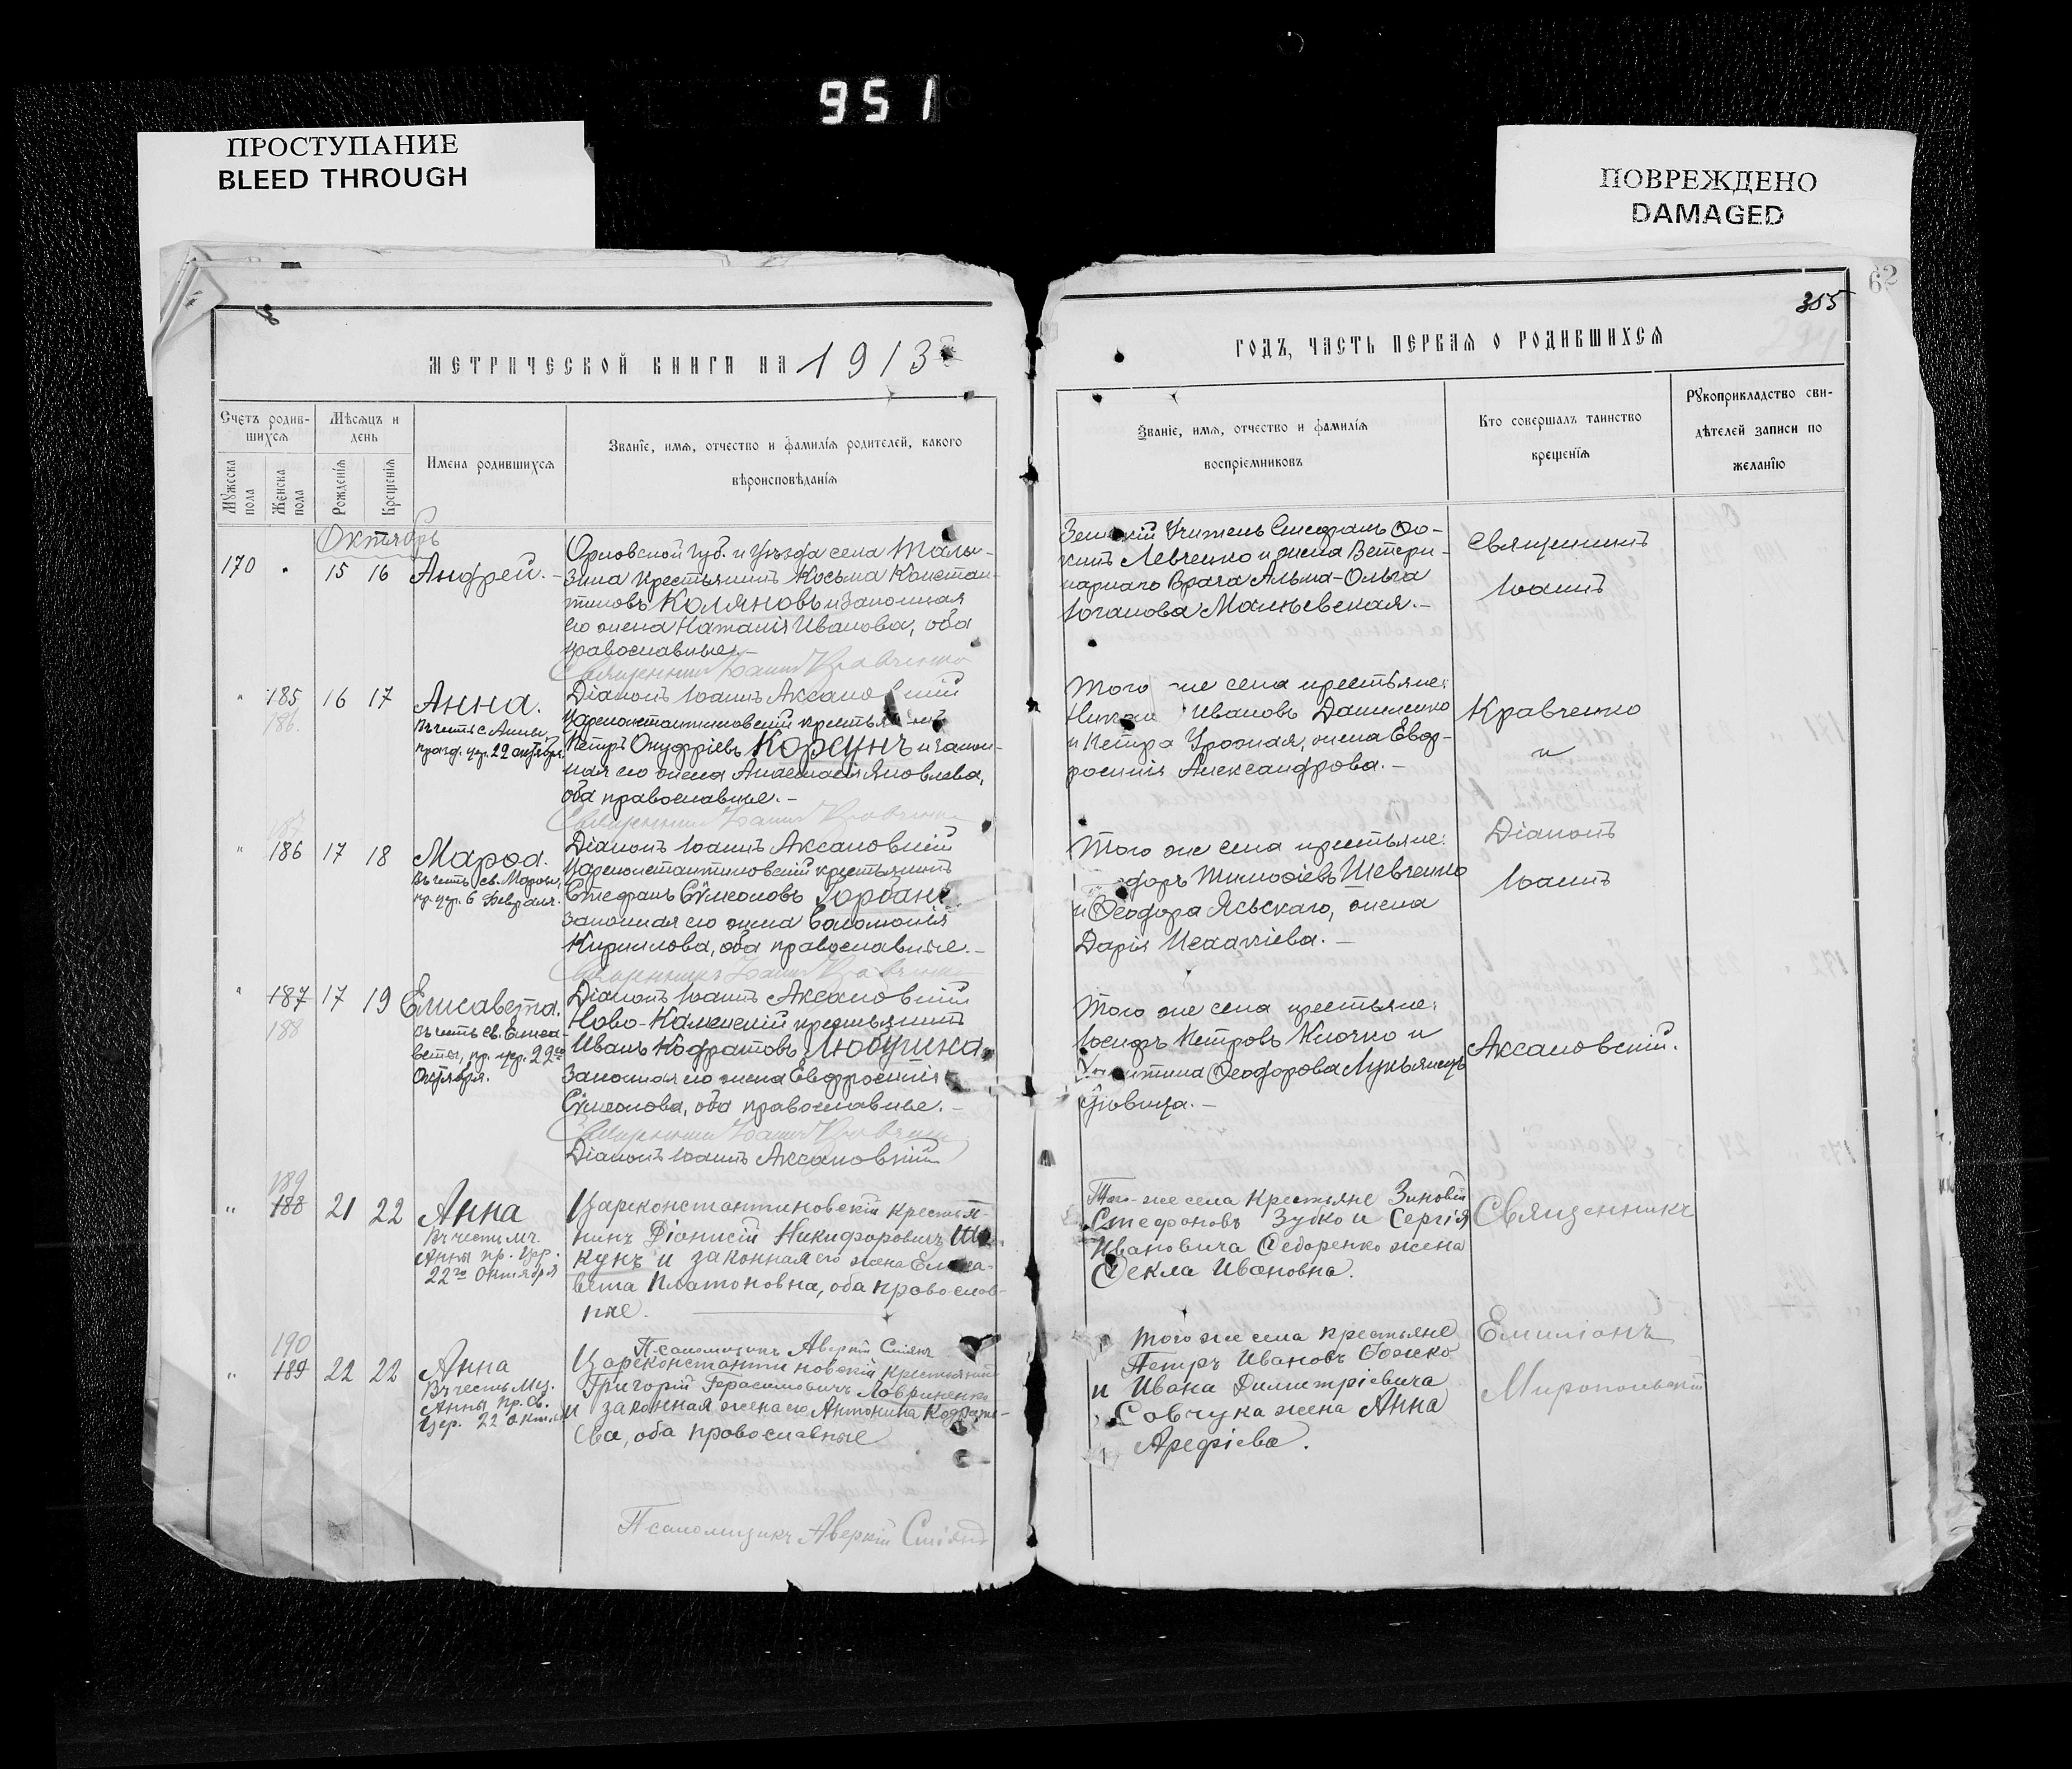 951
ПРОСТУПАНИЕ
BLEED THROUGH
ПОВРЕЖДЕНО
DAMAGED
62
355
МЕТРИЧЕСКОЙ КНИГИ НА 1913
ГОДЪ, ЧАСТЬ ПЕРВАЯ О РОДИВШИХСЯ
Счетъ родив-
шихся
Мужеска
пола
Женска
пола
Мѣсяцъ и
день
Рожденія
Крещенія
Имена родившихся
Званіе, имя, отчество и фамилія родителей, какого
вѣроисповѣданія
Званіе, имя, отчество и фамилія
воспріемниковъ
Кто совершалъ таинство
крещенія
Рукоприкладство сви-
дѣтелей записи по
желанію
Октябрь
170 " 15 16 Андрей.
Орловской Губ. и Уѣзда села
зина крестьянинъ Косьма Констан-
тиновъ Коляновъ и законная
его жена Наталія Иванова, оба
православные.-
Священникъ Іоаннъ Кравченко
Діаконъ Іоаннъ Аксановскій
Земскій Учитель Стефанъ Ѳо-
кинъ Левченко и жена Ветери-
нарнаго Врача Альма-Ольга
Юганова Малѣевская.-
Священникъ
Іоаннъ
" 185 16 17 Анна.
186
въ честь с. Анны,
празд. цер. 29 октября.
Цареконстантиновскій крестьянинъ
Петръ Онуфріевъ Корсунъ и закон-
ная его жена Анастасія Яковлева,
оба православные.-
Священникъ Іоаннъ Кравченко
Діаконъ Іоаннъ Аксановскій
Того же села крестьяне:
Ивановъ Даниленко
и Петра жена Евф-
росинія Александрова.-
Кравченко
и
187
" 186 17 18 Марѳа.
Въ честь св. Марѳы,
пр. цер. 6 Февраля.
Цареконстантиновскій крестьянинъ
Стефанъ Сѵмеоновъ Горбань
законная его жена Соломонія
Кириллова, оба православные.-
Священникъ Іоаннъ Кравченко
Діаконъ Іоаннъ Аксановскій
Того же села крестьяне:
доръ Тимоѳіевъ Шевченко
и Ѳеодора Яськаго, жена
Дарія
Діаконъ
Іоаннъ
" 187 17 19 Елисавета.
188
въ честь св. Елиса-
веты, пр. цер. 22го
Октября.
Ново-Каменскій крестьянинъ
Иванъ Кодратовъ Любушка,
Законная его жена Евфросинія
Сѵмеонова, оба православные.-
Священникъ Іоаннъ Кравченко
Діаконъ Іоаннъ Аксановскій
Того же села крестьяне:
Іосифъ Петровъ Клочко и
Ѳеодорова
Аксановскій.
189
" 188 21 22 Анна
Въ честь мч.
Анны пр. Цер.
22го Октября
Цареконстантиновскій крестья-
нинъ Діонисій Никифоровичъ
кунъ и законная его жена Елиса-
вета Платоновна, оба православ-
ные.
Псаломщикъ Аверкій
Того-же села Крестьяне Зиновій
Стефановъ Зубко и Сергія
Ивановича Ѳедоренко жена
Ѳекла Ивановна.
Священникъ
190
" 189 22 22 Анна
Въ честь Мц.
Анны пр. Св.
Цер. 22 Октяб.
Цареконстантиновскій Крестьянинъ
Григорій Герасимовичъ Лавриненко
и законная жена его Антонина Кодрать-
ева, оба православные
Псаломщикъ Аверкій
Того же села крестьяне
Петръ Ивановъ Божко
и Ивана Димитріевича
Савчука жена Анна
Арефіева.
Емиліанъ
Миропольскій